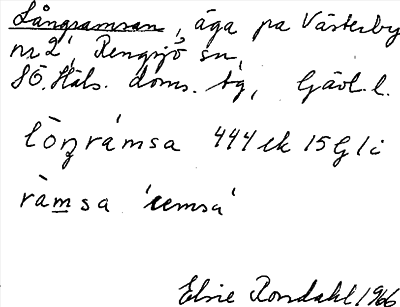 Långramsan, äga på Västerby
nr 2, Rengsjö sn,
SÖ. Häls. doms. tg, Gävl. l.
lòŋrámsa 444 ek 15 G l i
ràmsa 'remsa'
Elsie Rondahl 1966